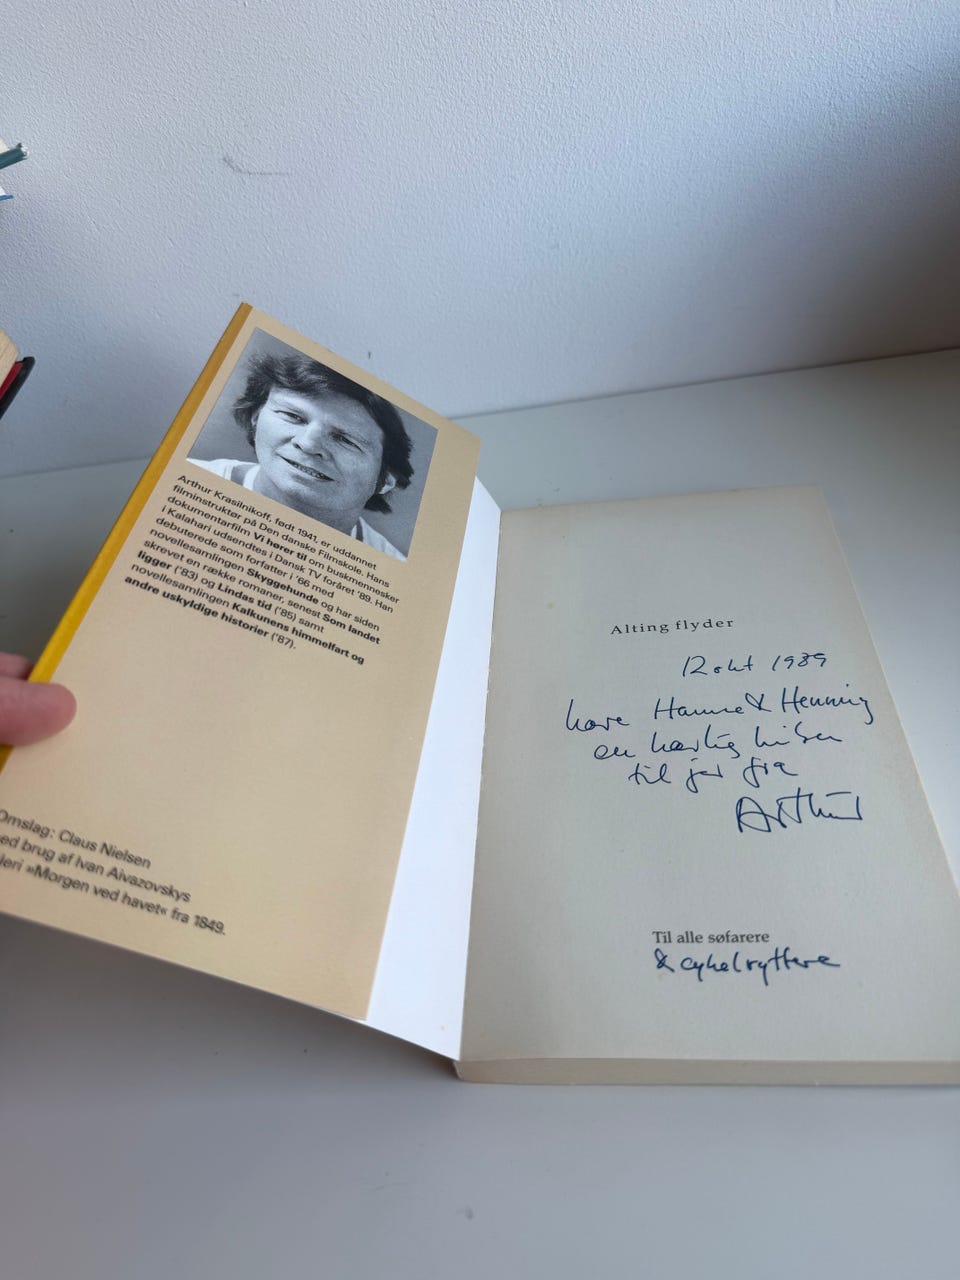 Arthur Krasilnikoff, født 1941, er uddannet
filminstruktør på Den danske Filmskole. Hans
dokumentarfilm Vi hører til om buskmennesker
i Kalahari udsendtes i Dansk TV foråret '89. Han
debuterede som forfatter i '66 med
novellesamlingen Skyggehunde og har siden
skrevet en række romaner, senest Som landet
ligger ('83) og Lindas tid ('85) samt
novellesamlingen Kalkunens himmelfart og
andre uskyldige historier ('87).
Omslag: Claus Nielsen
ed brug af Ivan Aivazovskys
leri »Morgen ved havet« fra 1849.
Alting flyder
12 okt 1989
kære Hanne & Henning
en kærlig hilsen
til jer fra
Arthur
Til alle søfarere
& cykelryttere